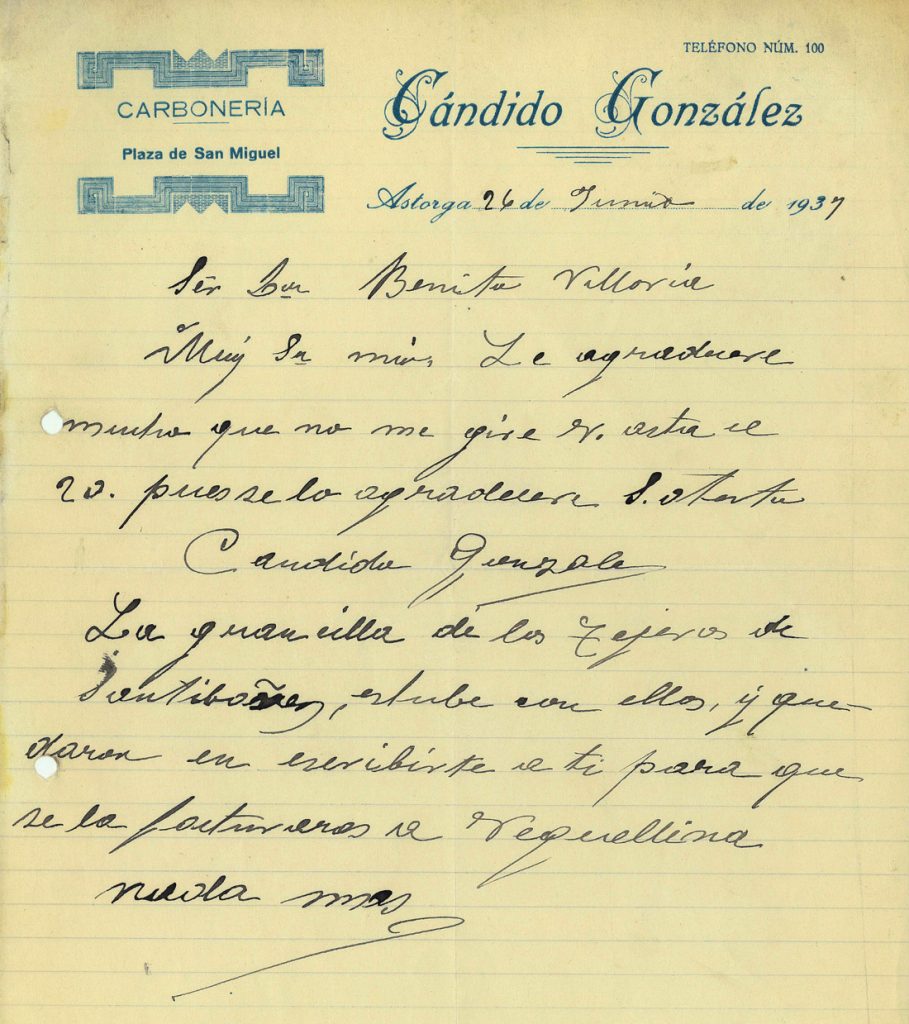 TELÉFONO NÚM. 100
CARBONERÍA
Plaza de San Miguel
Cándido González
Astorga 26 de Junio de 1937
Sër Dn Benito Valloria
Muy Sr mio, Le agradecere
mucho que no me gire V. asta el
20. pues se lo agradecere S. atento
Candido Gonzale
La grancilla de los Tejeros de
Santibañes, estube con ellos, y que-
daron en escribirte a ti para que
se la facturaras a Veguellina
nada mas